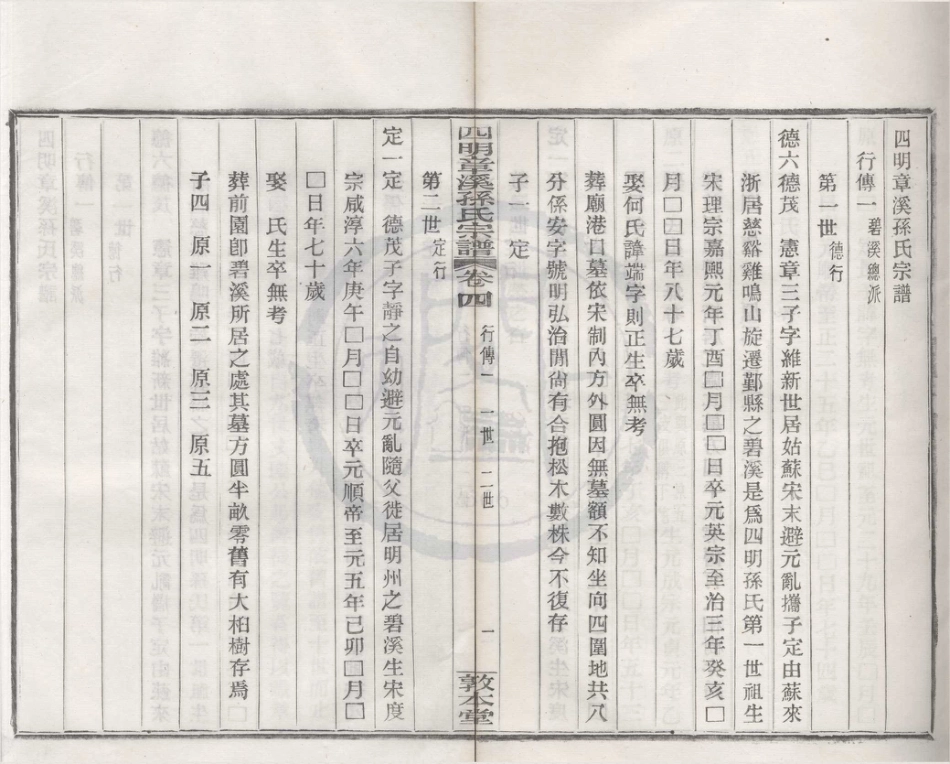 四明章溪孫氏宗譜
行傳一 碧溪總派
第一世 德行
德六德茂 憲章三子字維新世居姑蘇宋末避元亂攜子定由蘇來
浙居慈谿雞鳴山旋遷鄞縣之碧溪是爲四明孫氏第一世祖生
宋理宗嘉熙元年丁酉□月□□日卒元英宗至治三年癸亥□
月□□日年八十七歲
娶何氏諱端字則正生卒無考
葬廟港口墓依宋制內方外圓因無墓額不知坐向四圍地共八
分係安字號明弘治閒尚有合抱松木數株今不復存
子一 定
四明章溪孫氏宗譜 卷四 行傳一 一世 二世 一 敦本堂
第二世 定行
定一定 德茂子字靜之自幼避元亂隨父徙居明州之碧溪生宋度
宗咸淳六年庚午□月□□日卒元順帝至元五年己卯□月□
□日年七十歲
娶 氏生卒無考
葬前園卽碧溪所居之處其墓方圓半畝零舊有大柏樹存焉
子四 原一 原二 原三 原五